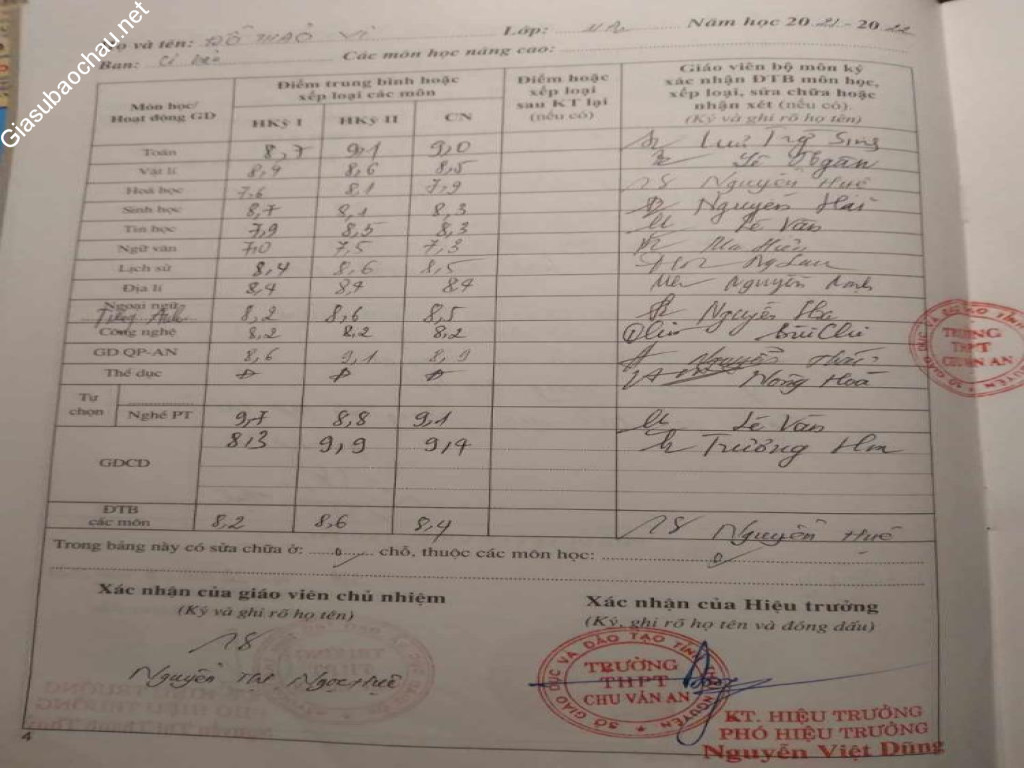 Giasubaochau.net
Họ và tên: ĐỖ THẢO VI Lớp: 11A Năm học 2021-2022
Ban: Cơ bản Các môn học nâng cao:
Môn học/ Hoạt động GD
Điểm trung bình hoặc xếp loại các môn
HKỳ I HKỳ II CN
Điểm hoặc xếp loại sau KT lại (nếu có)
Giáo viên bộ môn ký xác nhận ĐTB môn học, xếp loại, sửa chữa hoặc nhận xét (nếu có).
(Ký và ghi rõ họ tên)
Toán 8,7 9,1 9,0
Vật lí 8,4 8,6 8,5 Lê Ngân
Hoá học 7,6 8,1 7,9 Nguyễn Huê
Sinh học 8,7 8,1 8,3 Nguyễn Hai
Tin học 7,9 8,5 8,3 Lê Vân
Ngữ văn 7,0 7,5 7,3
Lịch sử 8,4 8,6 8,5
Địa lí 8,4 8,4 8,4 Nguyễn
Ngoại ngữ: Tiếng Anh 8,2 8,6 8,5 Nguyễn
Công nghệ 8,2 8,2 8,2 Bùi Chi
GD QP-AN 8,6 9,1 8,9
Thể dục Đ Đ Đ Nông Hoà
Tự chọn
Nghề PT 9,7 8,8 9,1 Lê Vân
GDCD 8,3 9,9 9,4 Trương
ĐTB các môn 8,2 8,6 8,4 Nguyễn Huê
Trong bảng này có sửa chữa ở: 0 chỗ, thuộc các môn học: 0
Xác nhận của giáo viên chủ nhiệm
(Ký và ghi rõ họ tên)
Nguyễn Thị Ngọc Huê
Xác nhận của Hiệu trưởng
(Ký, ghi rõ họ tên và đóng dấu)
SỞ GIÁO DỤC VÀ ĐÀO TẠO TỈNH
TRƯỜNG
THPT
CHU VĂN AN
KT. HIỆU TRƯỞNG
PHÓ HIỆU TRƯỞNG
Nguyễn Việt Dũng
TRƯỜNG
THPT
CHU VĂN AN
4